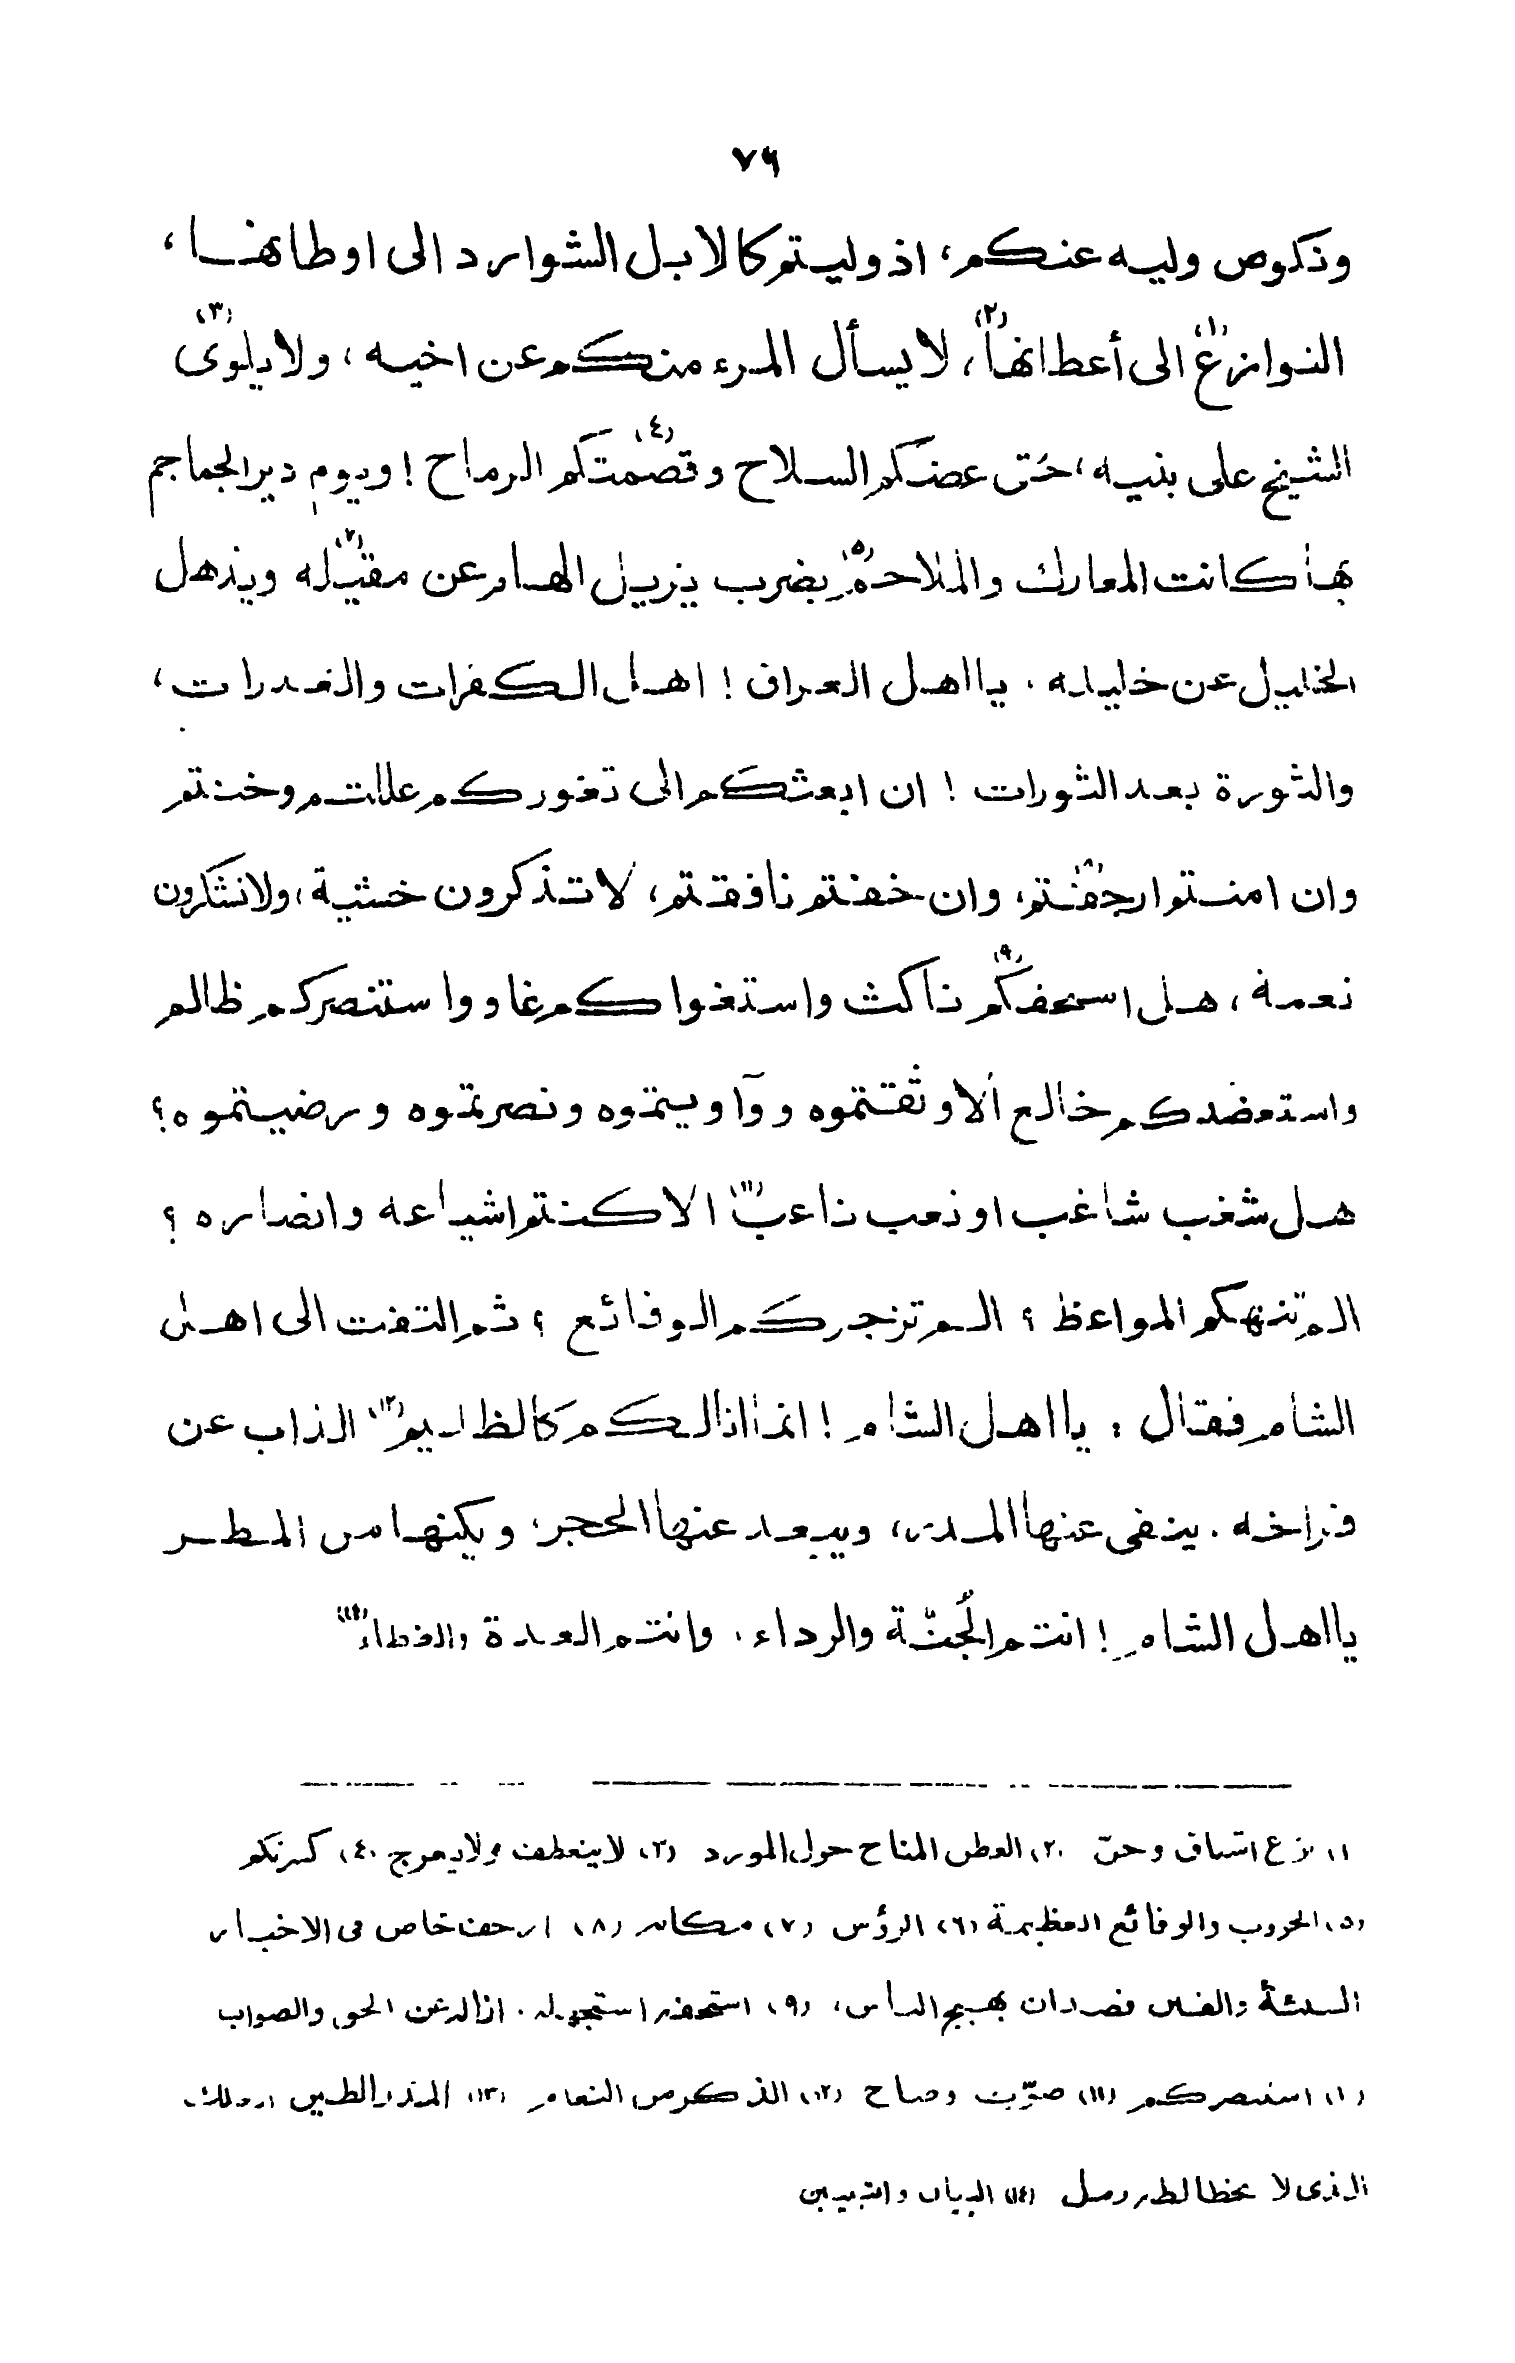 ٧٦
ونكوص وليه عنكم، اذ وليتم كالابل الشوارد الى اوطانها،
النوازع(١) الى أعطانها(٢)، لا يسأل المرء منكم عن اخيه، ولا يلوى(٣)
الشيخ على بنيه، حتى عضكم السلاح وقصمتكم(٤) الرماح! ويوم دير الجماجم
بها كانت المعارك والملاحم(٥) بضرب يزيل الهام عن مقيله(٧) ويذهل
الخليل عن خليله. يا اهل العراق! اهل الكفرات والغدرات،
والثورة بعد الثورات! ان ابعثكم الى ثغوركم غللتم وخنتم
وان امنتم ارجفتم(٨)، وان خفتم نافقتم، لا تذكرون خشية، ولا تشكرون
نعمة، هل استخفكم(٩) ناكث واستغواكم غاو واستنصركم ظالم
واستعضدكم خالع الا وثقتموه وآويتموه ونصرتموه ورضيتموه؟
هل شغب شاغب او نعب ناعب(١١) الا كنتم اشياعه وانصاره؟
الم تنهكم المواعظ؟ الم تزجركم الوقائع؟ ثم التفت الى اهل
الشام فقال: يا اهل الشام! انما انا لكم كالظليم(١٢) الذاب عن
فراخه. ينفى عنها المدر، ويبعد عنها الحجر، ويكنها من المطر
يا اهل الشام! انتم الجُنّة والرداء، وانتم العدة والغطاء(١٤)
(١) نزع اشتاق وحنّ (٢) العطن المناخ حول المورد (٣) لا ينعطف ولا يعرج (٤) كسرتكم
(٥) الحروب والوقائع العظيمة (٦) الرؤس (٧) مكانه (٨) ارجف خاض فى الاخبار
السيئة والفتن قصد ان يهيج الناس، (٩) استخفه استجهله. ازاله عن الحق والصواب
(١٠) استنصركم (١١) صوّت وصاح (١٢) الذكر من النعام (١٣) المدر الطين
الذى لا يخالطه رمل (١٤) البيان والتبيين